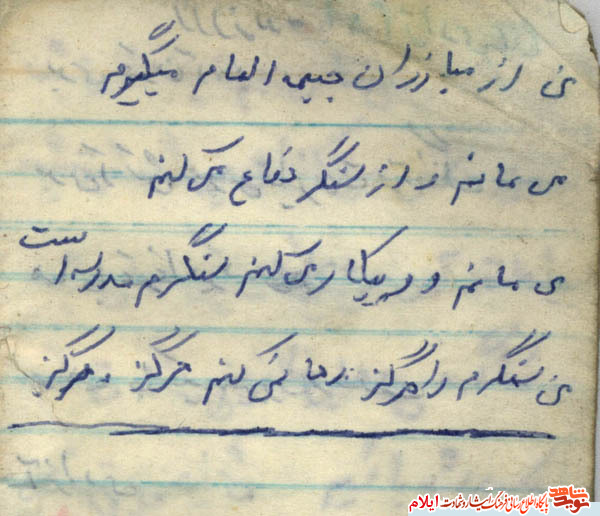 من از مبارزان جیبی الهام میگیرم
می مانم و از سنگر دفاع می کنم
می مانم و و پیکار می کنم سنگرم مدرسه است
من سنگرم را هرگز رها نمی کنم هرگز و هرگز
نوید شاهد پایگاه اطلاع رسانی فرهنگ ایثار و شهادت ایلام